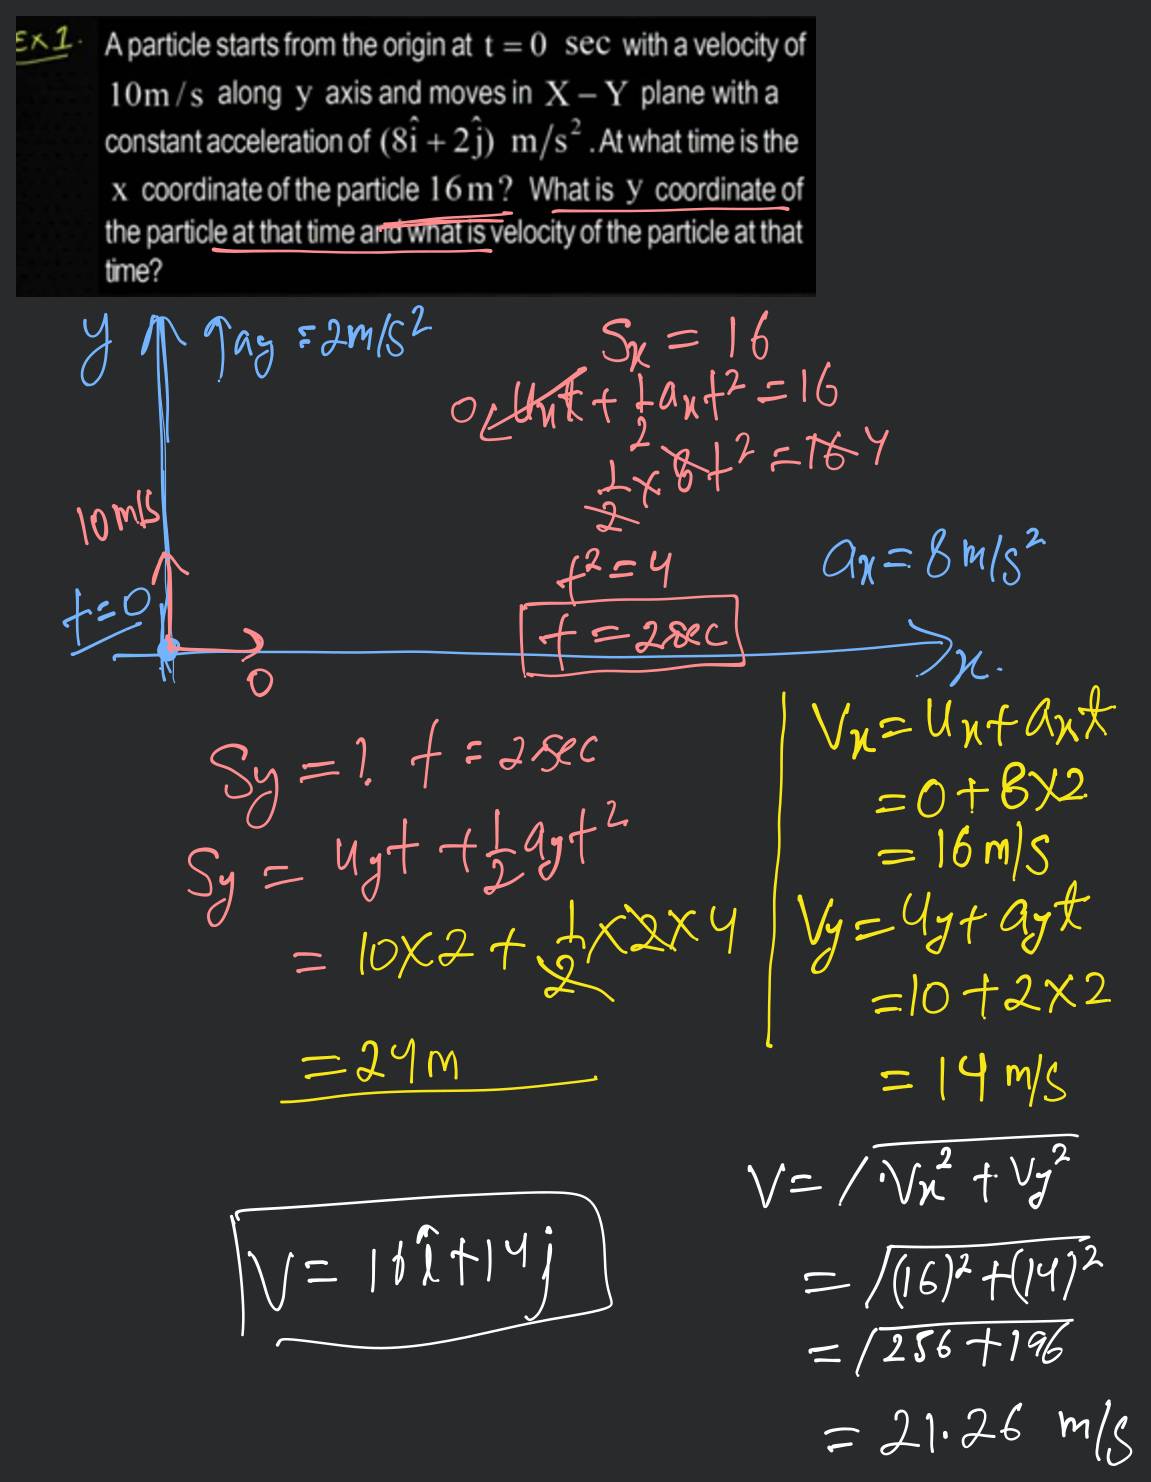 Ex 1. A particle starts from the origin at t = 0 sec with a velocity of
10m/s along y axis and moves in X – Y plane with a
constant acceleration of (8î + 2ĵ) m/s². At what time is the
x coordinate of the particle 16m? What is y coordinate of
the particle at that time and what is velocity of the particle at that
time?
y ay = 2m/s²
Sx = 16
0 uxt + 1/2 axt² = 16
1/2 × 8t² = 16 4
10m/s
t² = 4
ax = 8m/s²
t=0
t = 2sec
x.
0
Sy = ? t = 2sec
Sy = uyt + 1/2 ayt²
= 10×2 + 1/2×2×4
= 24m
Vx = ux + axt
= 0 + 8×2
= 16m/s
Vy = uy + ayt
= 10 + 2×2
= 14 m/s
V = √Vx² + Vy²
= √(16)² + (14)²
= √256 + 196
= 21.26 m/s
V = 16î + 14j